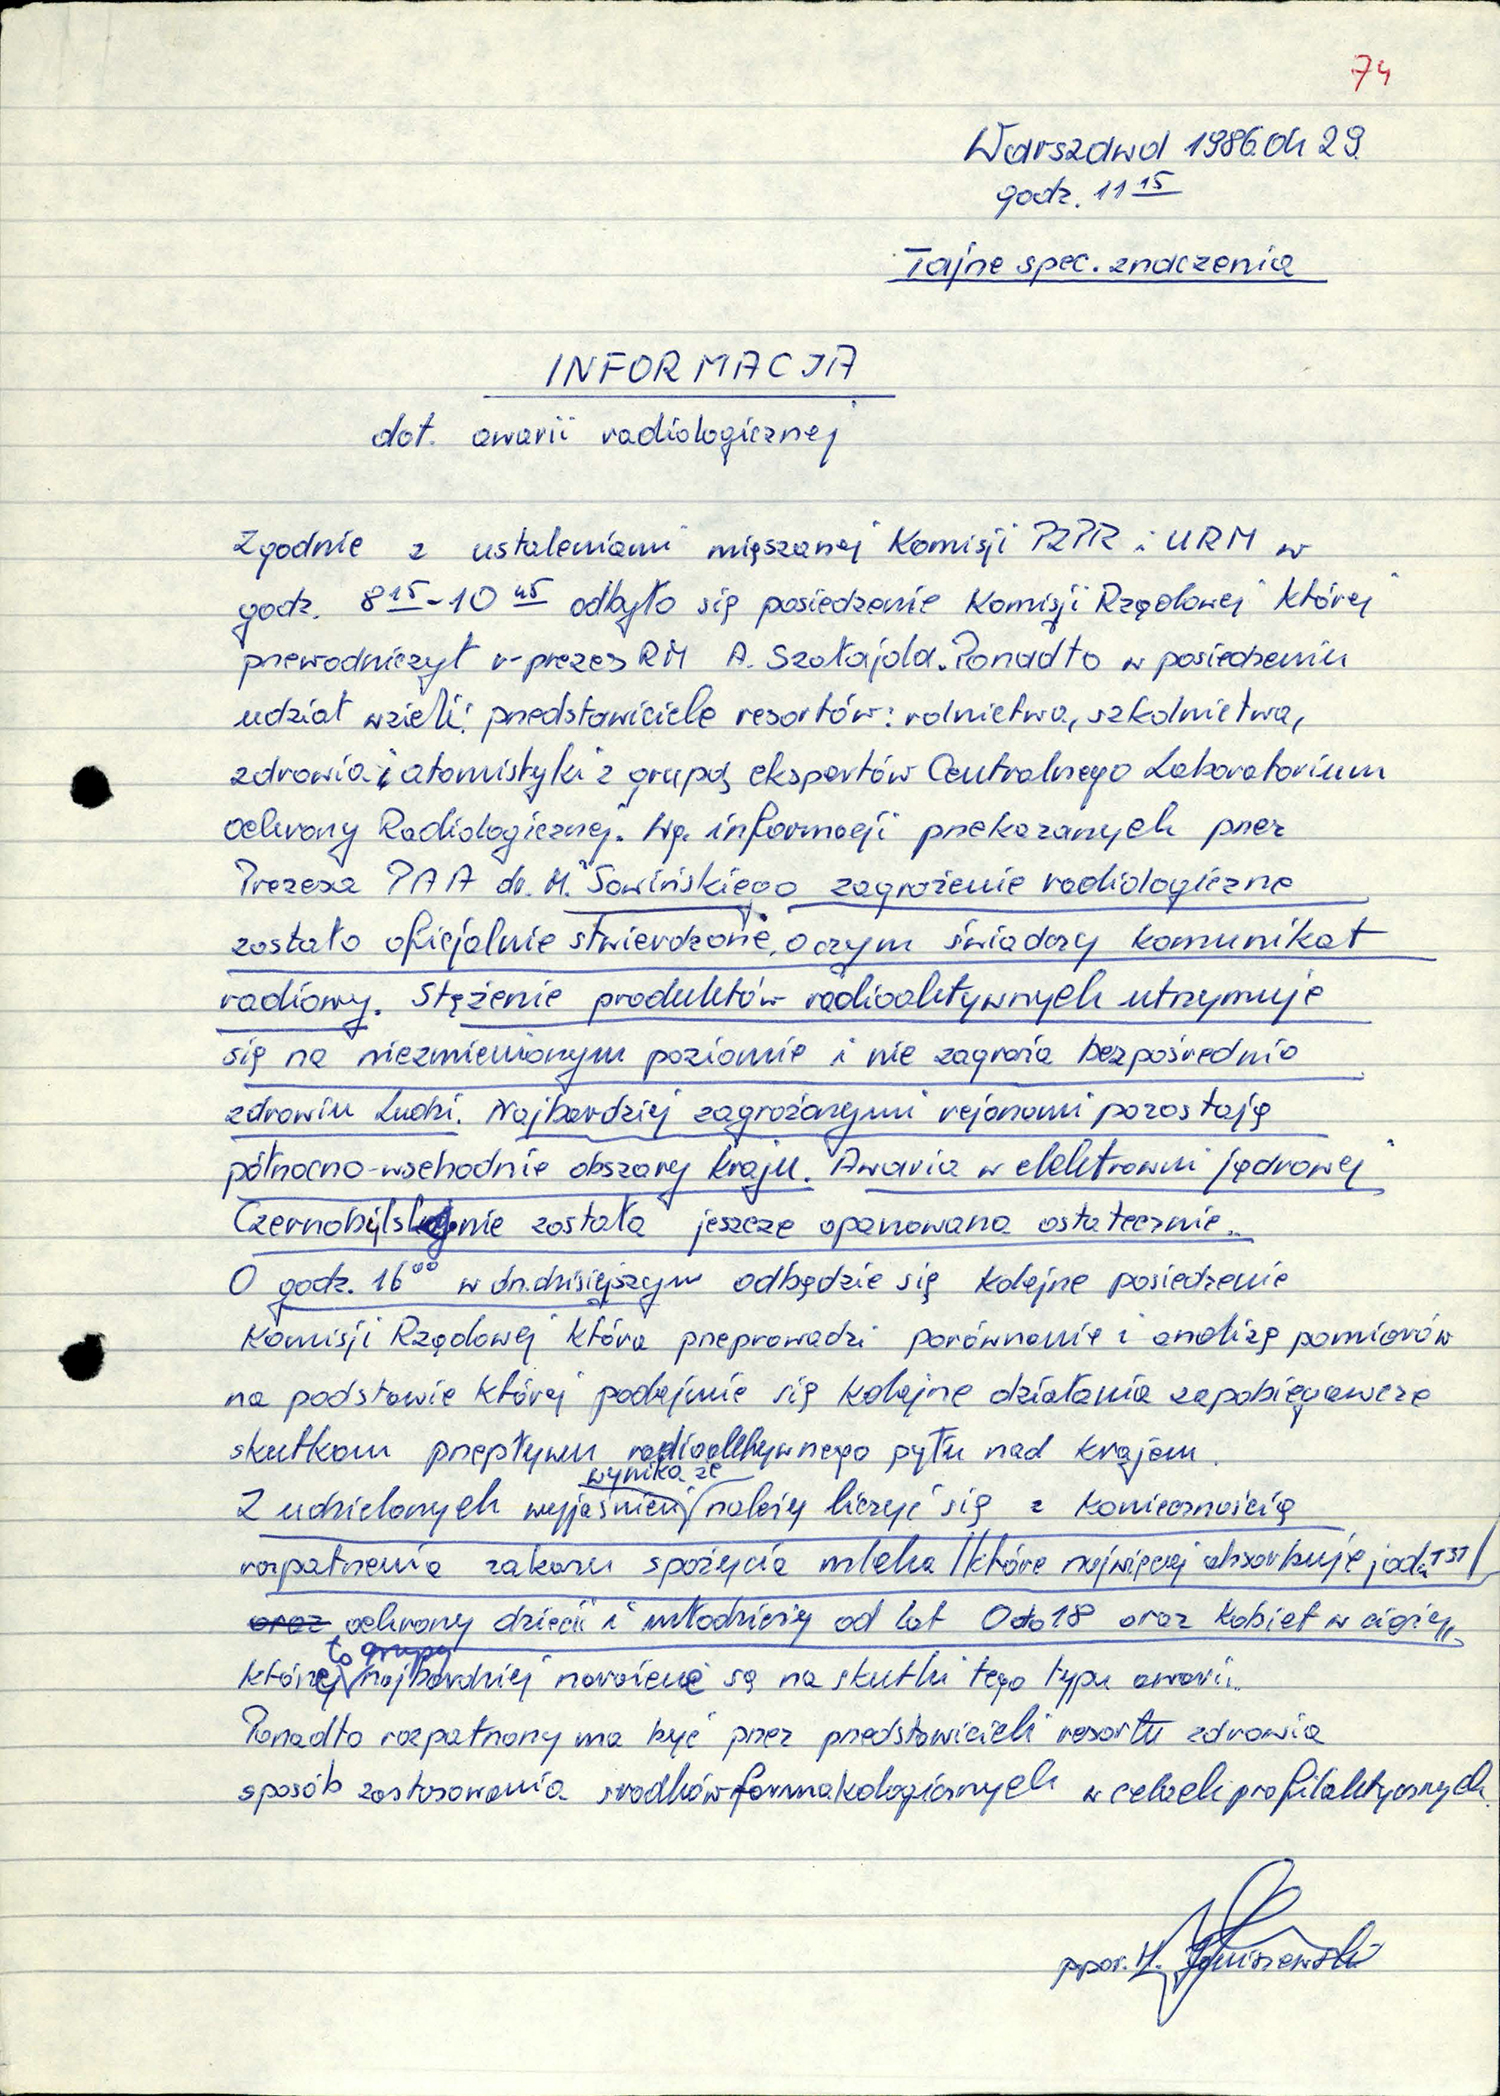 74
Warszawa 1986.04.29.
godz. 11 15
Tajne spec. znaczenia
INFORMACJA
dot. awarii radiologicznej
Zgodnie z ustaleniami mięszanej Komisji PZPR i URM w
godz. 8 15 - 10 45 odbyło się posiedzenie Komisji Rządowej której
przewodniczył v-prezes RM A. Szołajda. Ponadto w posiedzeniu
udział wzieli: przedstawiciele resortów: rolnictwa, szkolnictwa,
zdrowia i atomistyki z grupą ekspertów Centralnego Laboratorium
Ochrony Radiologicznej. Wg. informacji przekazanych przez
Prezesa PAA dr. M. Sowińskiego zagrożenie radiologiczne
zostało oficjalnie stwierdzone, o czym świadczy komunikat
radiowy. Stężenie produktów radioaktywnych utrzymuje
się na niezmienionym poziomie i nie zagraża bezpośrednio
zdrowiu ludzi. Najbardziej zagrożonymi rejonami pozostają
północno-wschodnie obszary kraju. Awaria w elektrowni jądrowej
Czernobylskiej nie została jeszcze opanowana ostatecznie.
O godz. 16 00 w dn. dzisiejszym odbędzie się kolejne posiedzenie
Komisji Rządowej która przeprowadzi porównanie i analizę pomiarów
na podstawie której podejmie się kolejne działania zapobiegawcze
skutkom przepływu radioaktywnego pyłu nad krajem.
wynika że
Z udzielonych wyjaśnień należy liczyć się z koniecznością
rozpatrzenia zakazu spożycia mleka /które najwięcej absorbuje jodu 131/
oraz ochrony dzieci i młodzieży od lat 0 do 18 oraz kobiet w ciąży,
to grupy
które najbardziej narażone są na skutki tego typu awarii.
Ponadto rozpatrzony ma być przez przedstawicieli resortu zdrowia
sposób zastosowania środków farmakologicznych w celach profilaktycznych.
ppor. H.